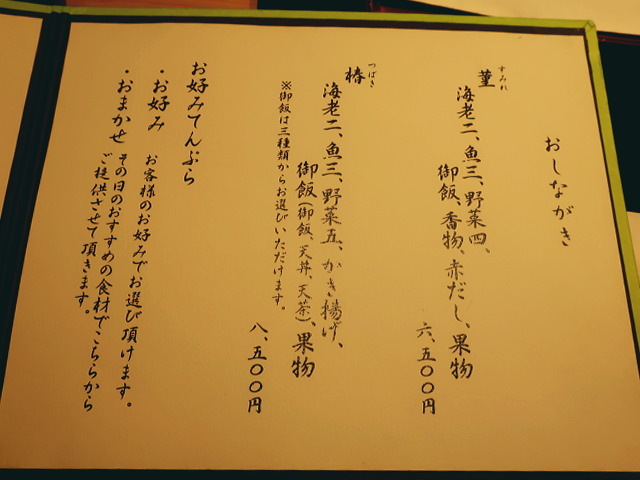 おしながき
すみれ
菫
海老二、魚三、野菜四、
御飯、香物、赤だし、果物
六、五〇〇円
つばき
椿
海老二、魚三、野菜五、かき揚げ、
御飯(御飯、天丼、天茶)、果物
※御飯は三種類からお選びいただけます。
八、五〇〇円
お好みてんぷら
・お好み お客様のお好みでお選び頂けます。
・おまかせ その日のおすすめの食材でこちらから
ご提供させて頂きます。